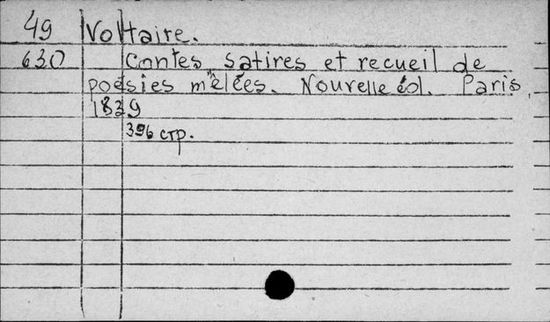 49 Voltaire.
630 Contes, satires et recueil de
poésies mêlées. Nouvelle éd. Paris,
1839
396 стр.